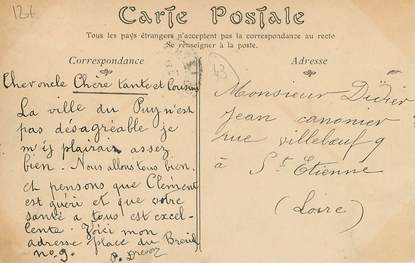 12t
Carte Postale
Tous les pays étrangers n'acceptent pas la correspondance au recto
(Se renseigner à la poste.
Correspondance
Adresse
43
Cher oncle Chère tante et Cousins
La ville du Puy n'est
pas désagréable je
m'y plairais assez
bien. Nous allons tous bien.
et pensons que Clément
est guéri et que votre
santé a tous est excel-
lente. Voici mon
adresse place du Breuil
no. 9.
Monsieur Didier
Jean canonier
rue villebœuf 9
à St Etienne
(Loire)